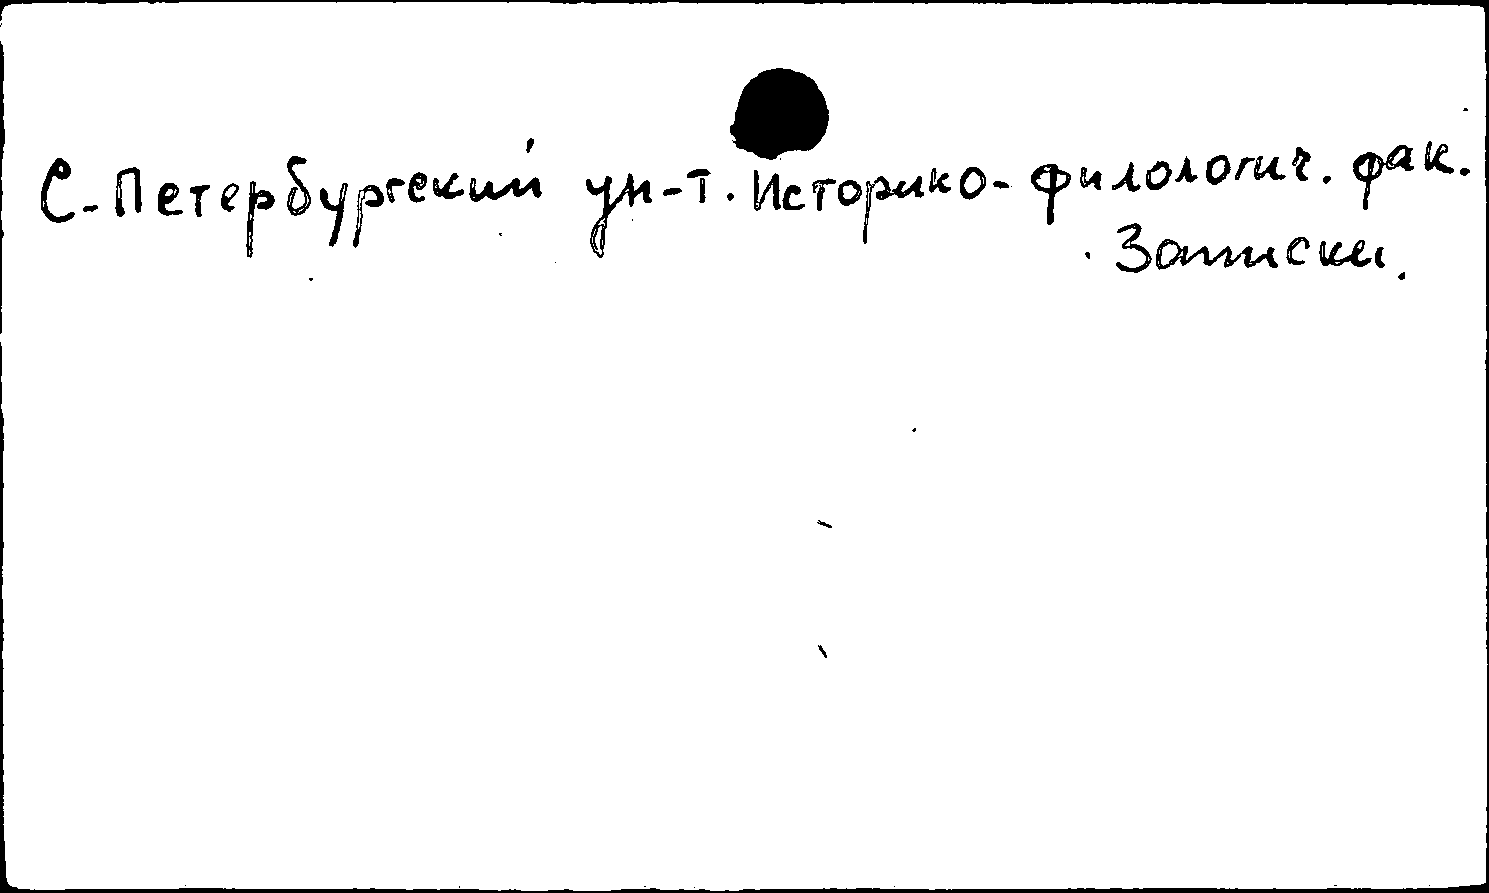 С.-Петербургский ун-т. Историко-филологич. фак.
Записки.